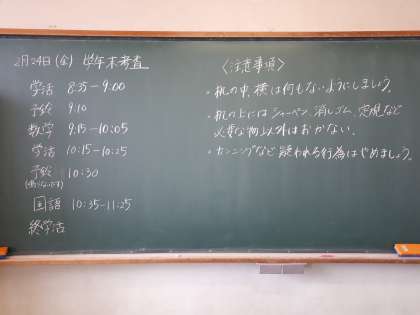 2月24日(金) 学年末考査
学活 8:35-9:00
予鈴 9:10
数学 9:15-10:05
学活 10:15-10:25
予鈴 10:30
国語 10:35-11:25
終学活
〈注意事項〉
・机の中、横は何もないようにしましょう。
・机の上にはシャーペン、消しゴム、定規など
必要な物以外はおかない。
・カンニングなど疑われる行為はやめましょう。